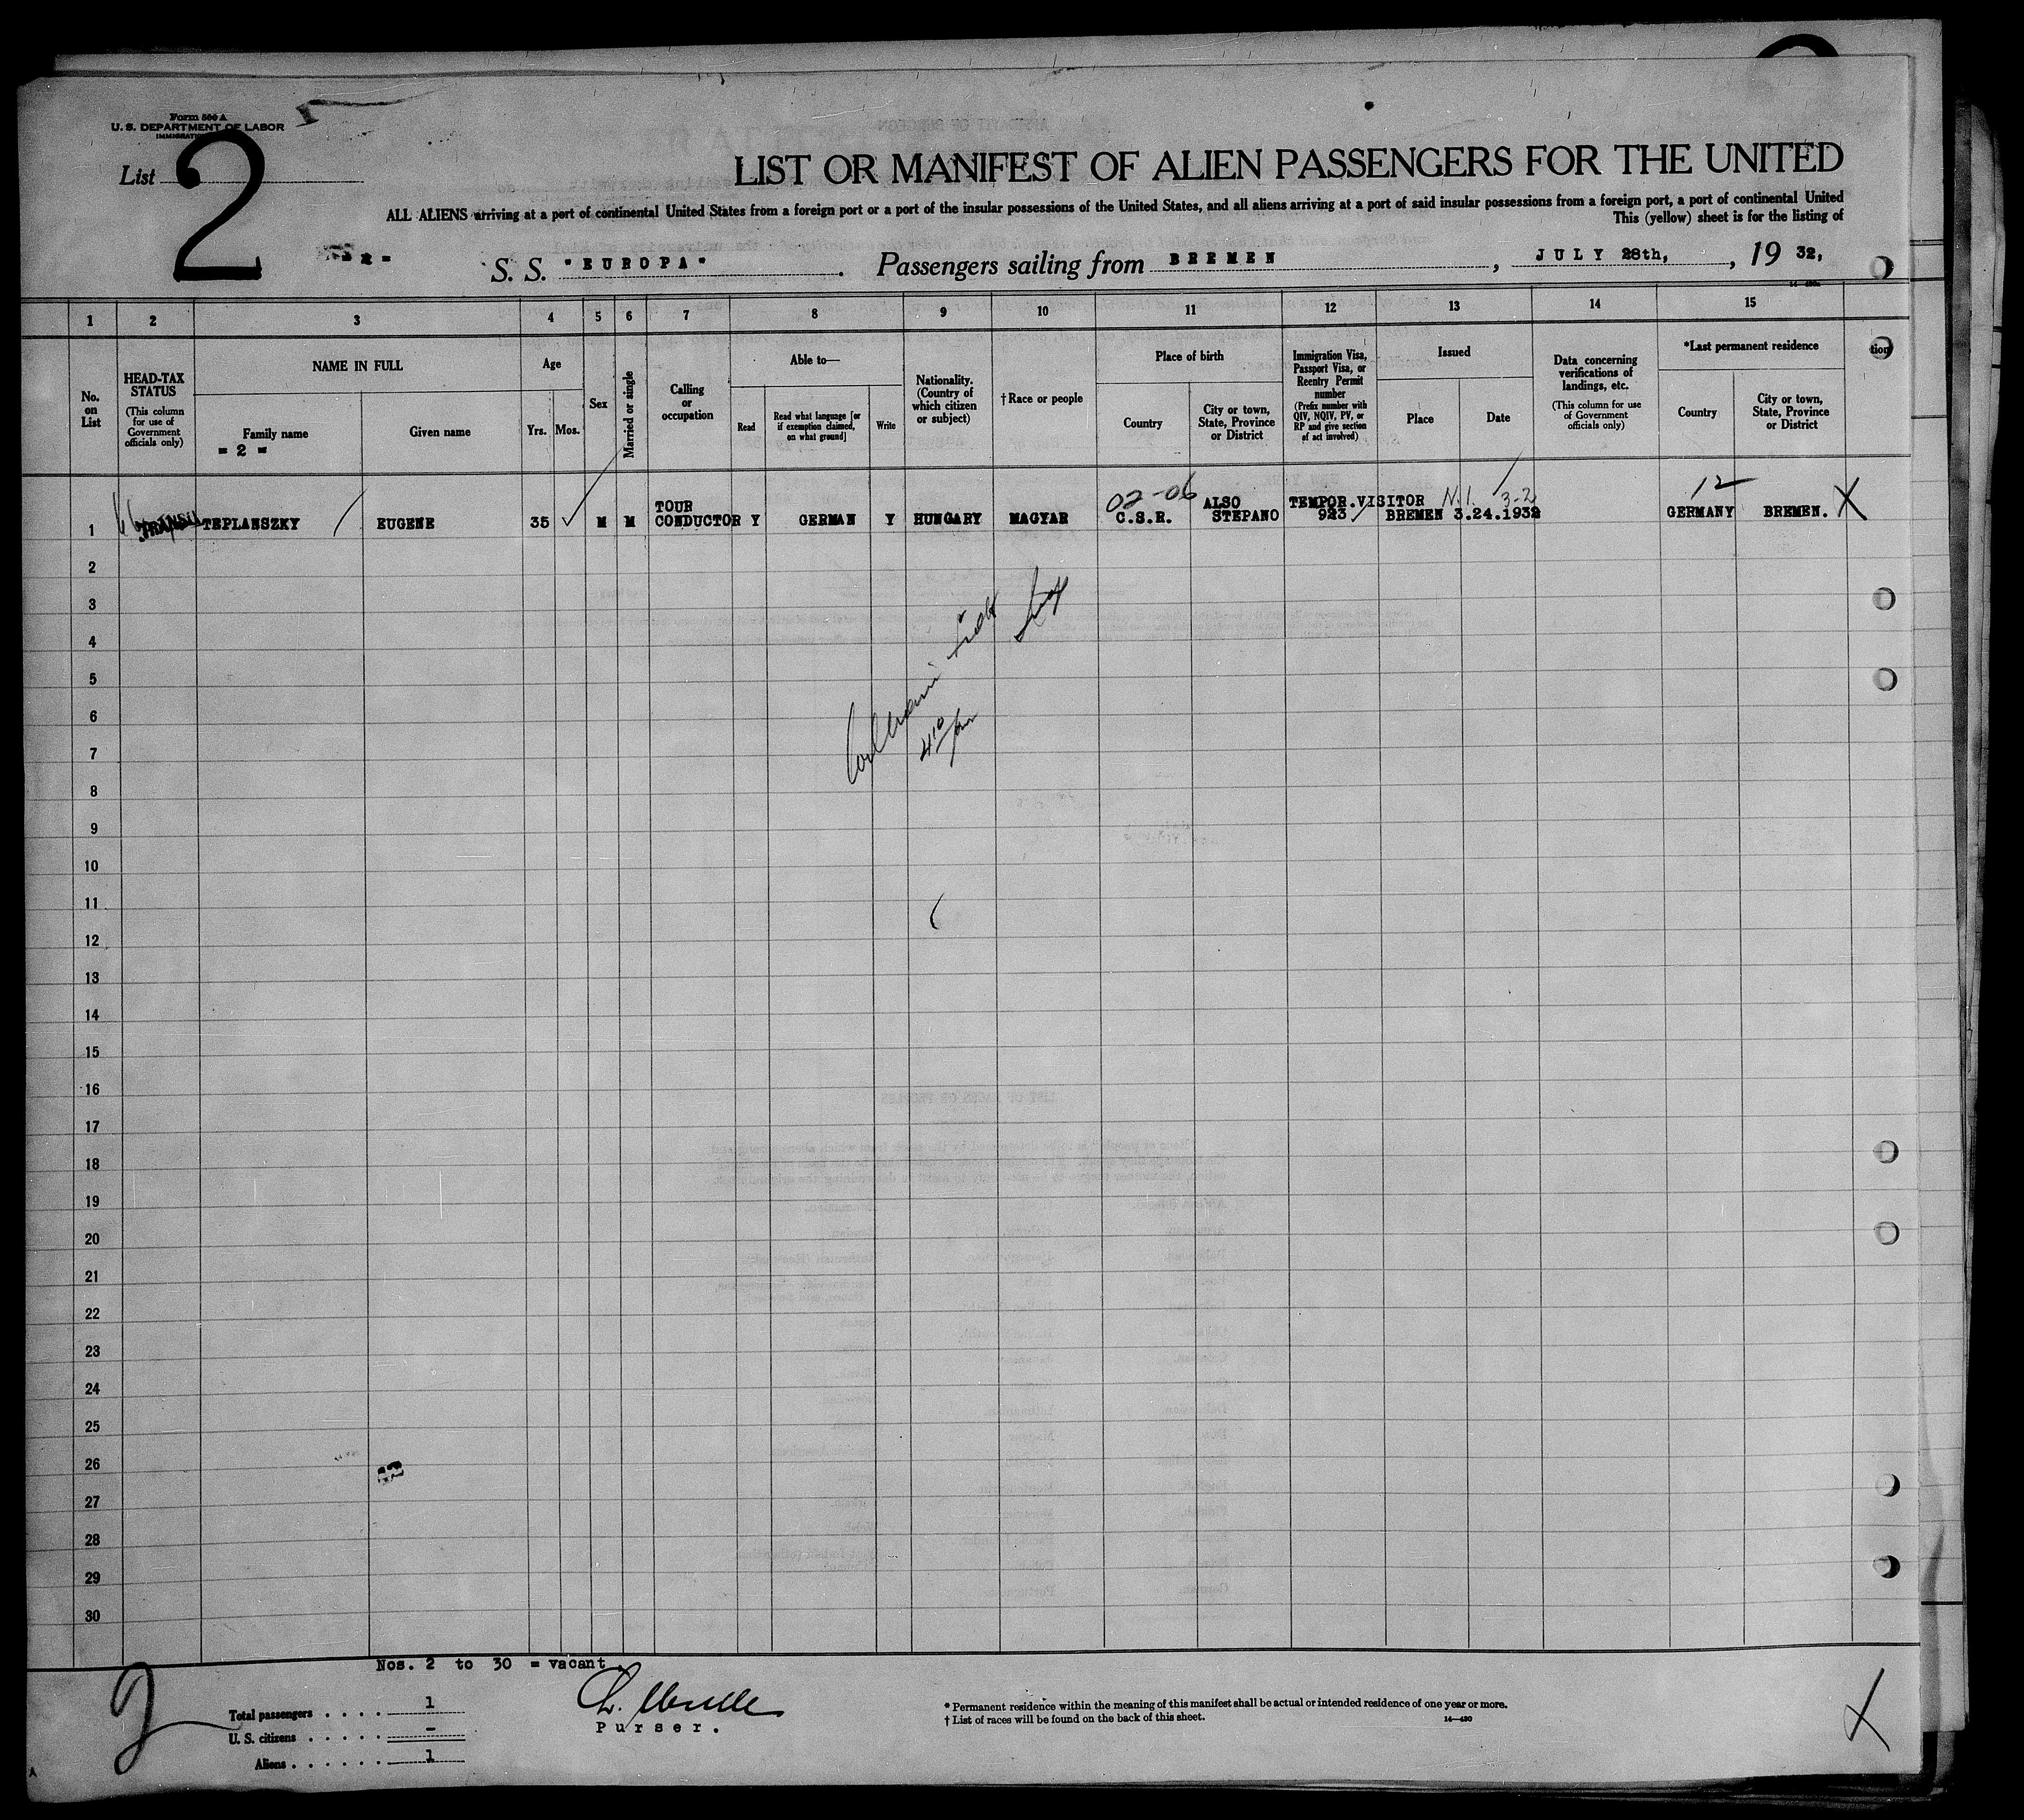 Form 500 A
U. S. DEPARTMENT OF LABOR
List 2
LIST OR MANIFEST OF ALIEN PASSENGERS FOR THE UNITED
ALL ALIENS arriving at a port of continental United States from a foreign port or a port of the insular possessions of the United States, and all aliens arriving at a port of said insular possessions from a foreign port, a port of continental United
This (yellow) sheet is for the listing of
S. S. "EUROPA" . Passengers sailing from BREMEN , JULY 28th, , 19 32,
1 2 3 4 5 6 7 8 9 10 11 12 13 14 15
No. on List
HEAD-TAX STATUS
(This column for use of Government officials only)
NAME IN FULL
Family name
= 2 =
Given name
Age
Yrs. Mos.
Sex
Married or single
Calling or occupation
Able to—
Read
Read what language [or if exemption claimed, on what ground]
Write
Nationality. (Country of which citizen or subject)
† Race or people
Place of birth
Country
City or town, State, Province or District
Immigration Visa, Passport Visa, or Reentry Permit number
(Prefix number with QIV, NQIV, PV, or RP and give section of act involved)
Issued
Place
Date
Data concerning verifications of landings, etc.
(This column for use of Government officials only)
*Last permanent residence
Country
City or town, State, Province or District
tion
02-06 N.I. 3-2 12
TOUR ALSO TEMPOR.VISITOR
1 TRANSIT TEPLANSZKY EUGENE 35 M M CONDUCTOR Y GERMAN Y HUNGARY MAGYAR C.S.R. STEPANO 923 BREMEN 3.24.1932 GERMANY BREMEN. X
2
3
4
5
6
7
8
9
10
11
12
13
14
15
16
17
18
19
20
21
22
23
24
25
26
27
28
29
30
Nos. 2 to 30 = vacant
2
Total passengers . . . . 1
U. S. citizens . . . . . –
Aliens . . . . . . 1
Purser.
* Permanent residence within the meaning of this manifest shall be actual or intended residence of one year or more.
† List of races will be found on the back of this sheet.
14—430
X